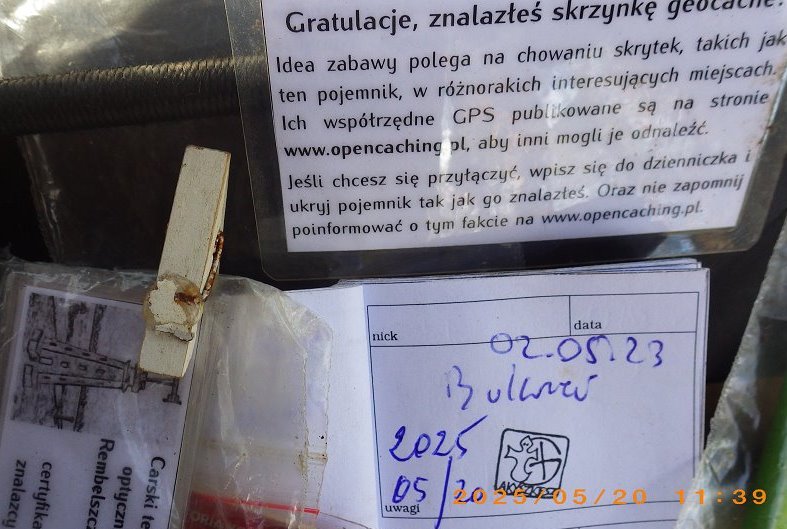 Gratulacje, znalazłeś skrzynkę geocache!
Idea zabawy polega na chowaniu skrytek, takich jak
ten pojemnik, w różnorakich interesujących miejscach.
Ich współrzędne GPS publikowane są na stronie
www.opencaching.pl, aby inni mogli je odnaleźć.
Jeśli chcesz się przyłączyć, wpisz się do dzienniczka i
ukryj pojemnik tak jak go znalazłeś. Oraz nie zapomnij
poinformować o tym fakcie na www.opencaching.pl.
nick
data
02.05.23
2025
05/20
uwagi
2025/05/20 11:39
Carski te
optyczn
Rembelszcz
certyfika
znalazcy